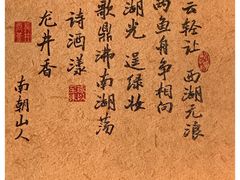 云轻让 西湖无浪
两鱼舟争相向
湖光 逞绿妆
歌鼎沸南湖荡
诗酒漾
龙井香
南朝山人